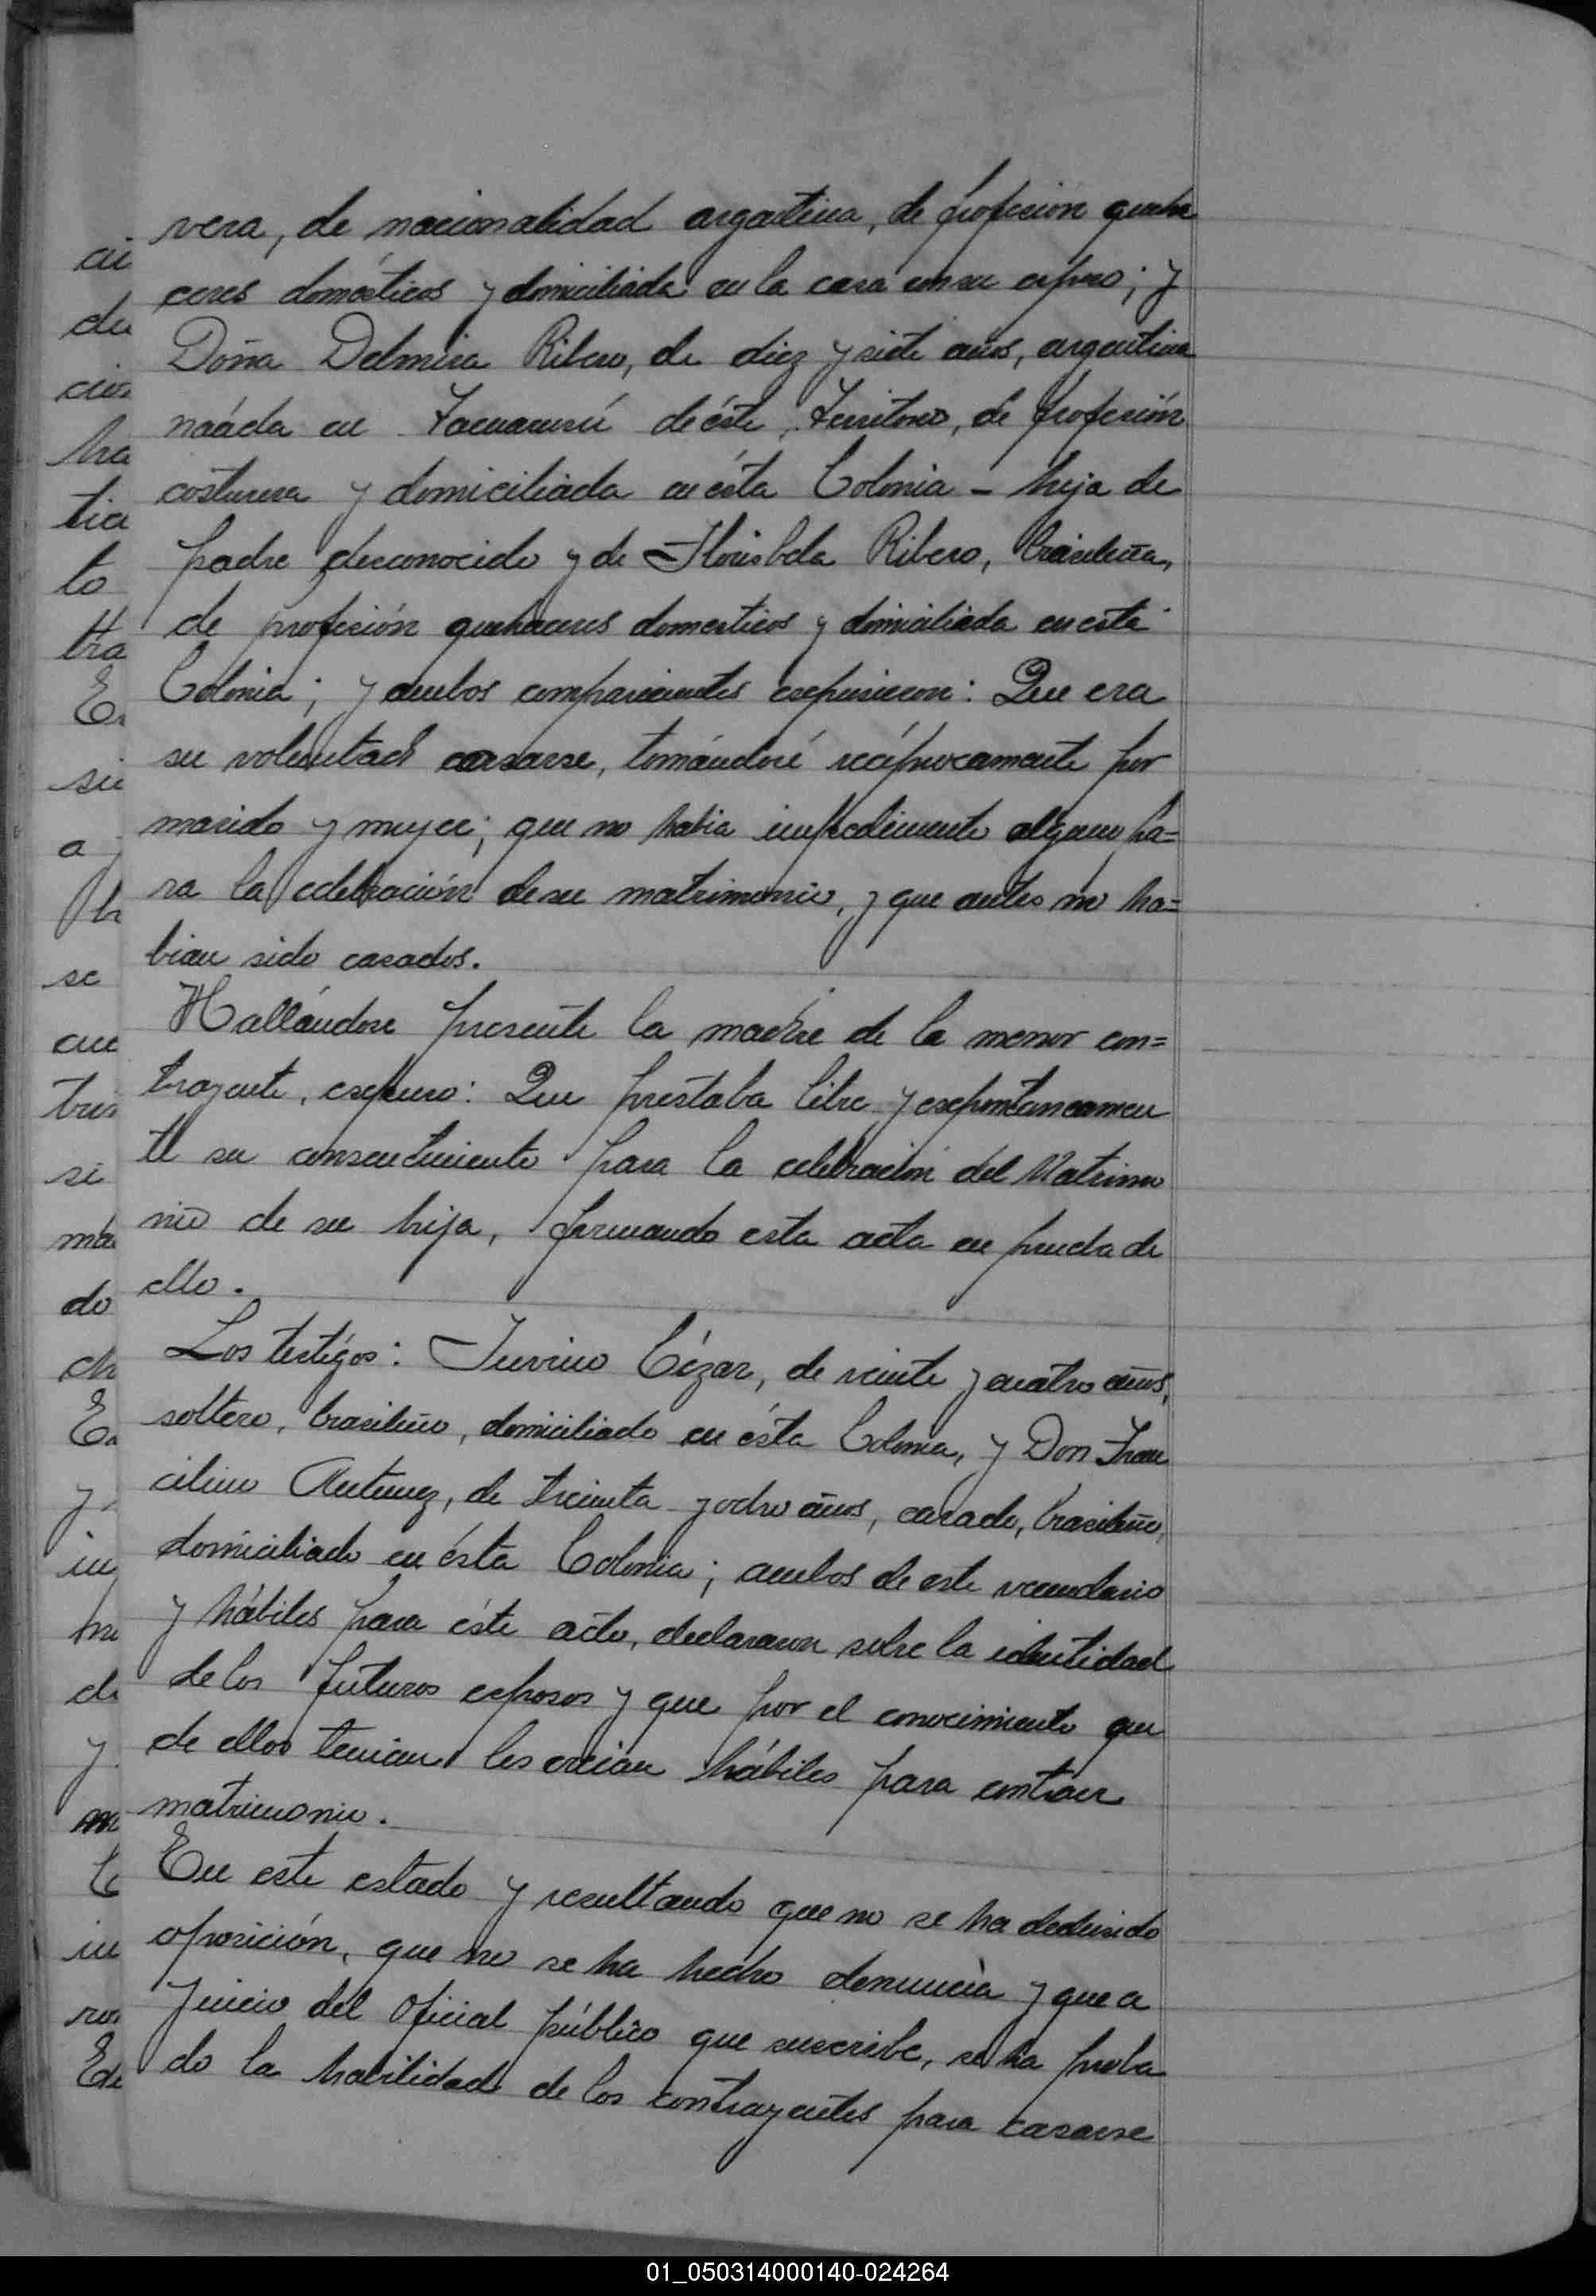 vera, de nacionalidad argentina, de profesión queha
ceres domésticos y domiciliada en la casa con su esposo; y
Doña Delmira Ribero, de diez y siete años, argentina
nacida en Yacuarusú de éste Territorio, de profesión
costurera y domiciliada en ésta Colonia - hija de
padre desconocido y de Florisbela Ribero, brasileña,
de profesión quehaceres domesticos y domiciliada en esta
Colonia; y ambos comparecientes expusieron: Que era
su voluntad casarse, tomándose recíprocamente por
marido y mujer; que no habia impedimento alguno pa=
ra la celebración de su matrimonio, y que antes no ha=
bian sido casados.
Hallándose presente la madre de la menor con=
trayente, expuso: Que prestaba libre y expontaneamen
te su consentimiento para la celebración del Matrimo
nio de su hija, firmando esta acta en prueba de
ello.
Los testigos: Juvino Cézar, de veinte y cuatro años,
soltero, brasileño, domiciliado en ésta Colonia, y Don Fran
cilino Antunez, de treinta y ocho años, casado, brasileño,
domiciliado en ésta Colonia; ambos de este vecindario
y hábiles para éste acto, declararon sobre la identidad
de los futuros esposos y que por el conocimiento que
de ellos tenian les creian hábiles para contraer
matrimonio.
En este estado y resultando que no se ha deducido
oposición, que no se ha hecho denuncia y que a
juicio del Oficial público que suscribe, se ha proba
do la habilidad de los contrayentes para casarse
01_050314000140-024264